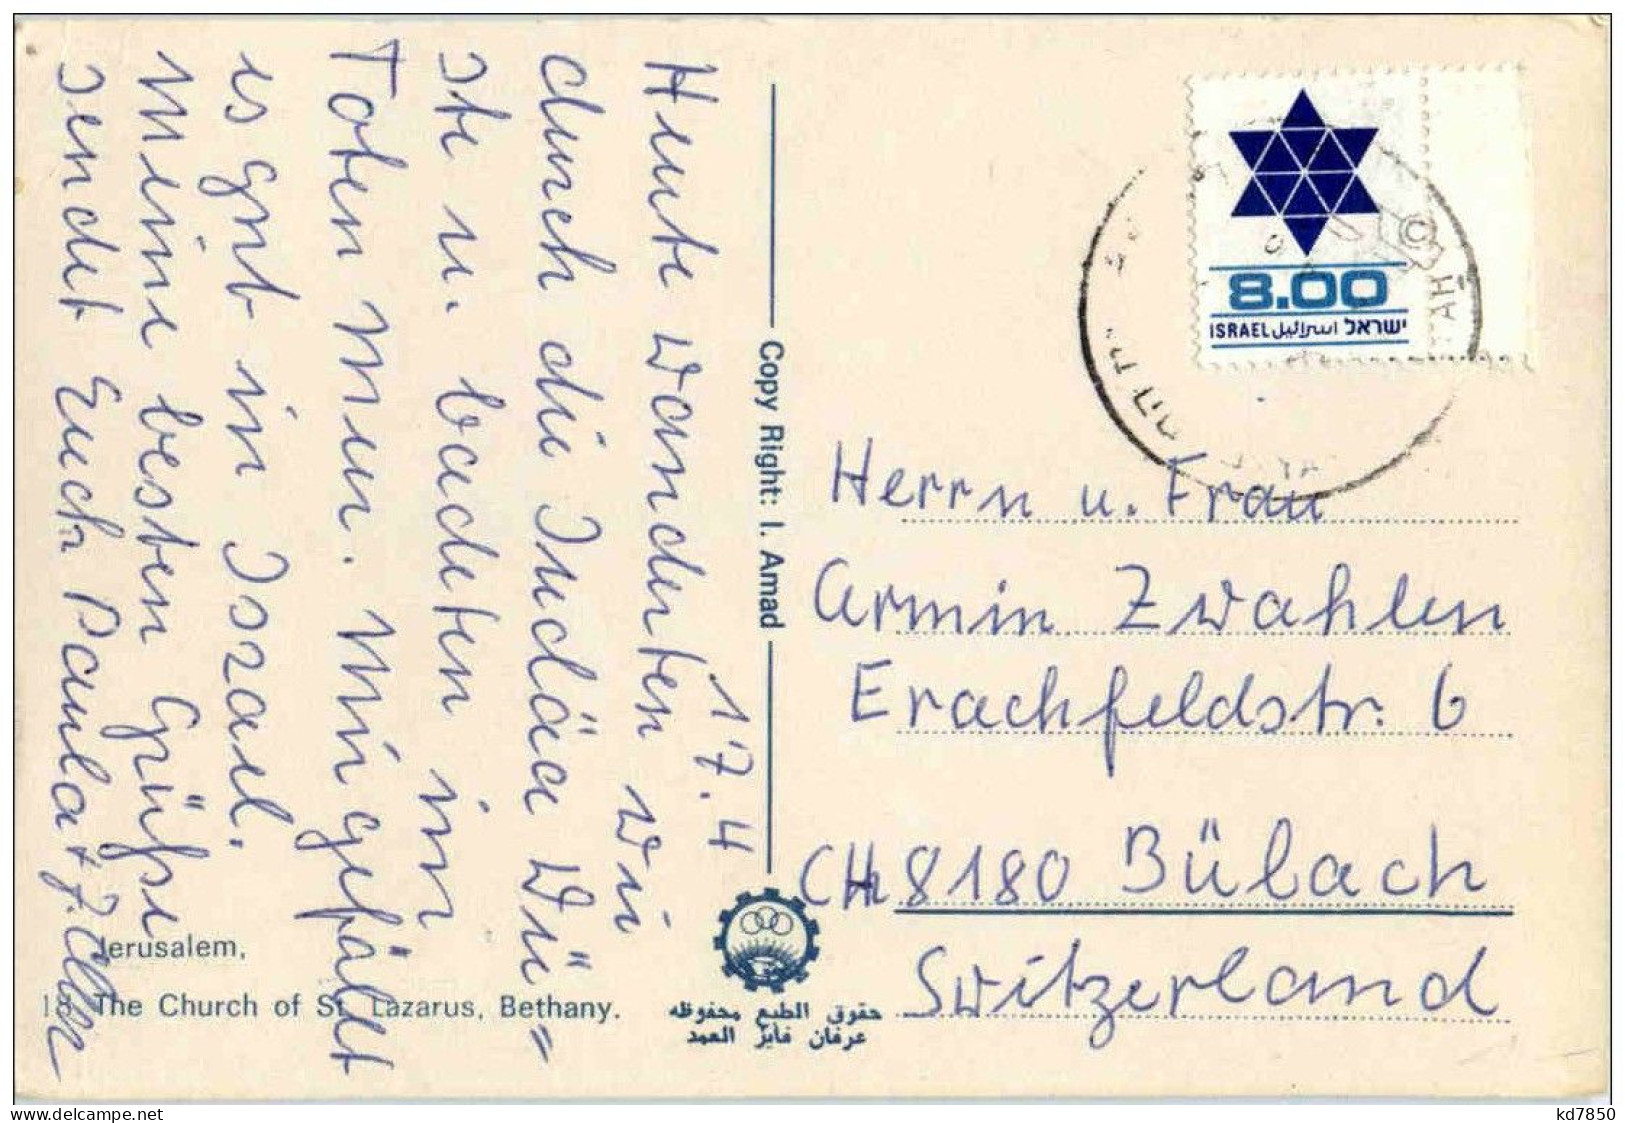 17.4
Heute wanderten wir
durch die Judäa Wü=
ste u. badeten im
Toten Meer. Mir gefällt
es gut in Israel.
Meine besten Grüsse
sendet Euch Paula +
Jerusalem,
The Church of St. Lazarus, Bethany.
Copy Right: I. Amad
حقوق الطبع محفوظه
عرفان فايز العمد
8.00
ISRAEL اسرائيل ישראל
Herrn u. Frau
Armin Zwahlen
Erachfeldstr. 6
CH 8180 Bülach
Switzerland
delcampe.net
kd7850